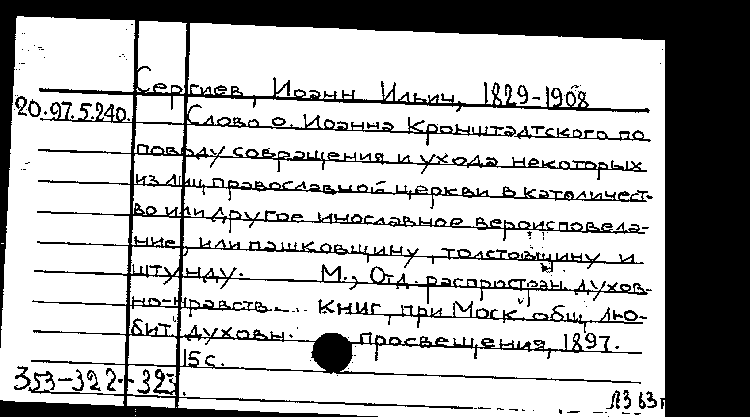 Сергиев, Иоанн Ильич, 1829-1908
20.97.5.240. Слово о. Иоанна Кронштадтского по
поводу совращения и ухода некоторых
из лиц православной церкви в католичест-
во или другое инославное вероисповеда-
ние, или пашковщину, толстовщину и
штунду. М., Отд. распростран. духов-
но-нравств. книг, при Моск. общ. лю-
бит. духовн. просвещения, 1897.
15 с.
353-322-323.